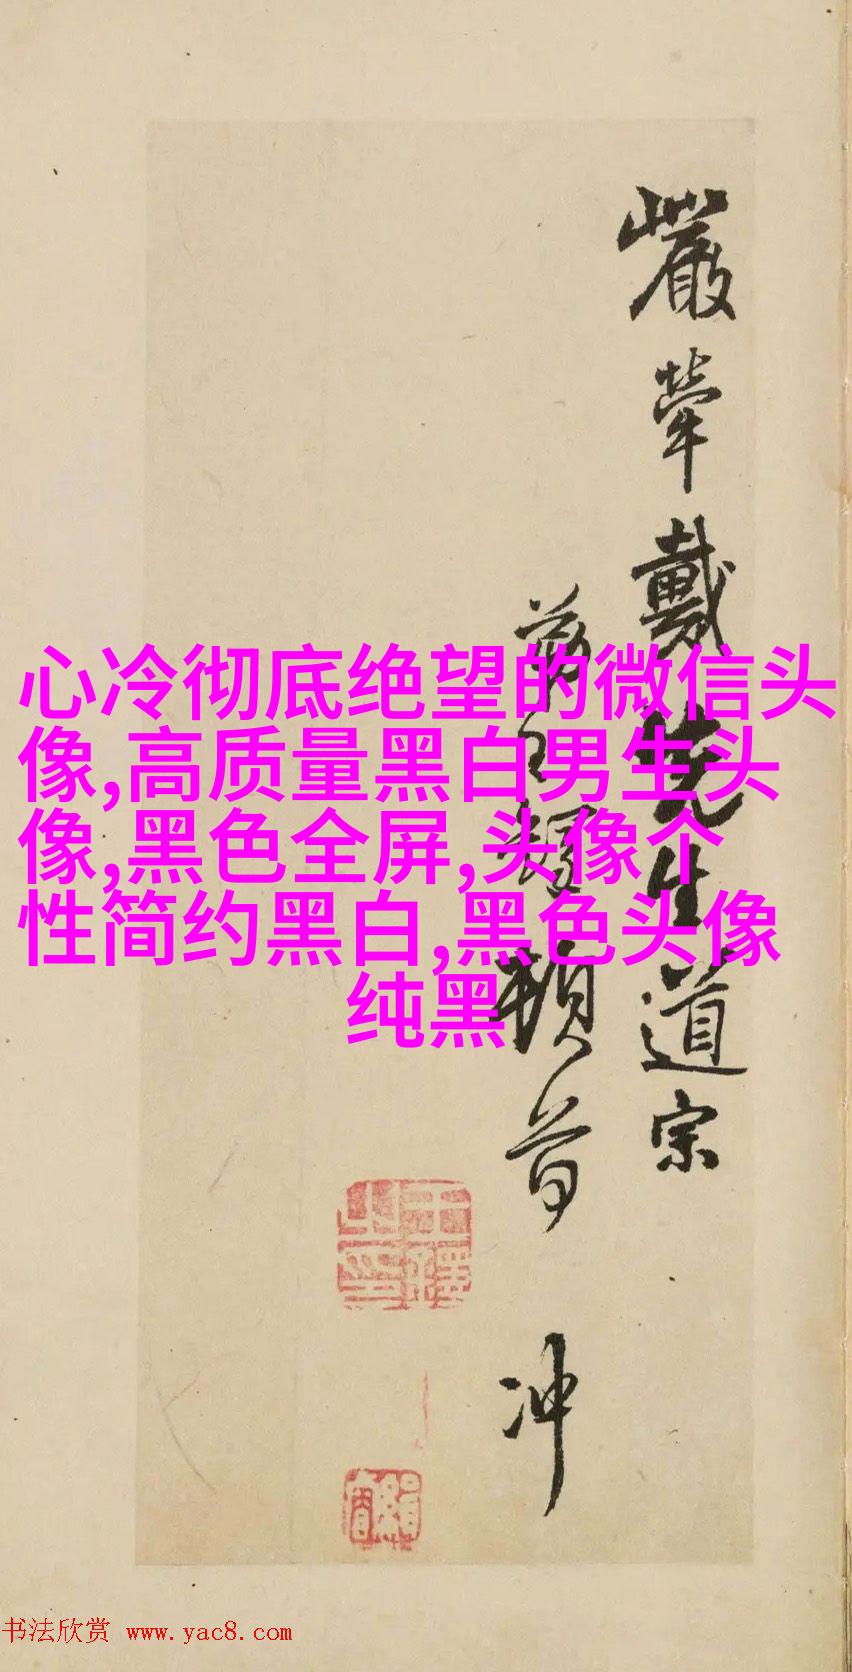 嚴犖戴先生道宗
蔣王穀頓首
冲
心冷彻底绝望的微信头
像,高质量黑白男生头
像,黑色全屏,头像个
性简约黑白,黑色头像
纯黑
书法欣赏 www.yac8.com